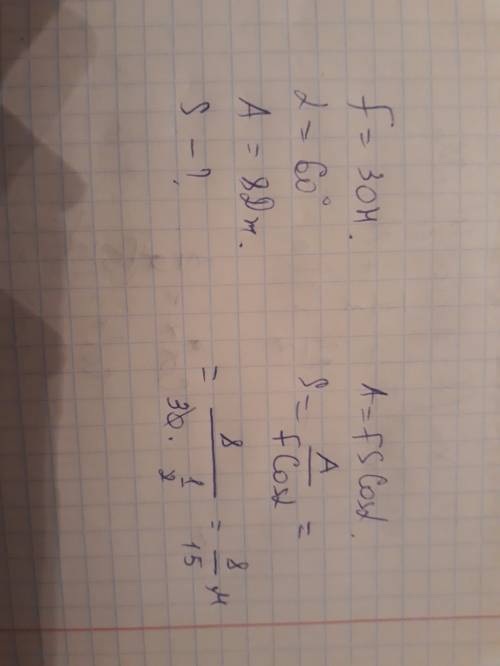 f = 30Н.
α = 60°
A = 8Дж.
S - ?
A = fSCosα.
S = A / fCosα =
= 8 / 30 · 1/2 = 8/15 м